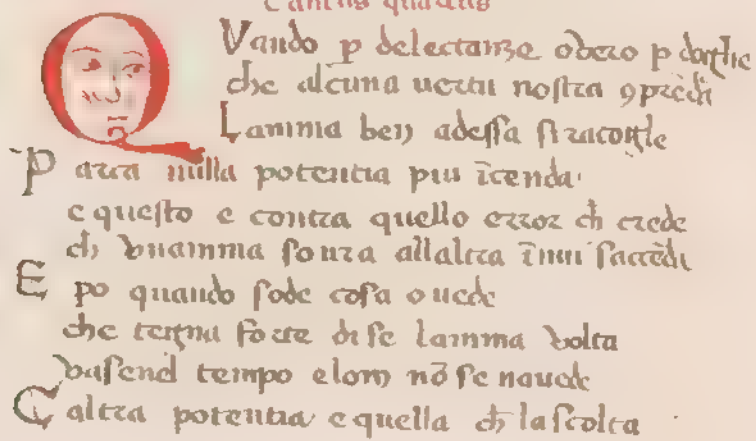 Cantus quartus
Quando p delectanze odero p doglie
che alcuna uertu nostra 9prēdi
Lanima ben adessa si racoglie
Parra nulla potentia piu ītenda
e questo e contra quello error ch̄ crede
ch̄ vnanima soura allaltra ī nui saccēdi
E po quando sode cosa o uede
che tegna forte di se lanima volta
vasend tempo elom nō se nauede
Caltra potentia e quella ch̄ lascolta